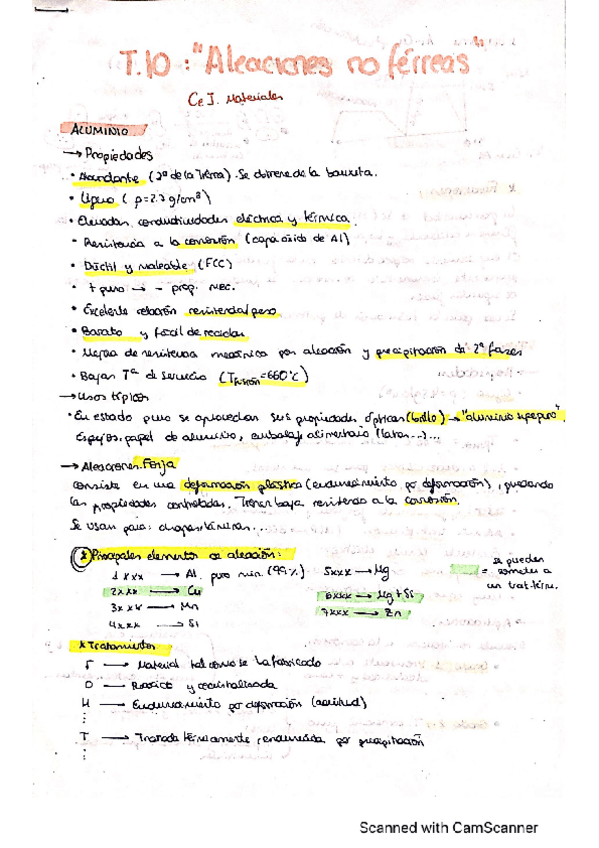 T.10 : "Aleaciones no férreas"
Ce I. Materiales
ALUMINIO
→ Propiedades
• Abundante (2º de la Tierra). Se obtiene de la bauxita.
• Ligero (ρ=2.7 g/cm³)
• Elevadas conductividades eléctrica y térmica.
• Resistencia a la corrosión (capa óxido de Al)
• Dúctil y maleable (FCC)
• + puro → - prop. mec.
• Excelente relación resistencia/peso
• Barato y fácil de reciclar
• Mejora de resistencia mecánica por aleación y precipitación de 2ª fases
• Bajas Tª de servicio (Tfusión=660°C)
→ Usos típicos
• En estado puro se aprovechan sus propiedades ópticas (brillo) → "aluminio superpuro".
Espejos, papel de aluminio, embalaje alimentario (latas...)...
→ Aleaciones Forja
Consiste en una deformación plástica (endurecimiento por deformación), quedando
las propiedades controladas. Tienen baja resistencia a la corrosión.
Se usan para: chapas, láminas...
* Principales elementos de aleación:
1xxx → Al. puro min. (99%) 5xxx → Mg
2xxx → Cu 6xxx → Mg + Si
3xxx → Mn 7xxx → Zn
4xxx → Si
= se pueden
someter a
un trat. térm.
* Tratamientos
F → Material tal como se ha fabricado
O → Recocido y recristalizada
H → Endurecimiento por deformación (acritud)
⋮
T → Tratada térmicamente, endurecida por precipitación
⋮
Scanned with CamScanner